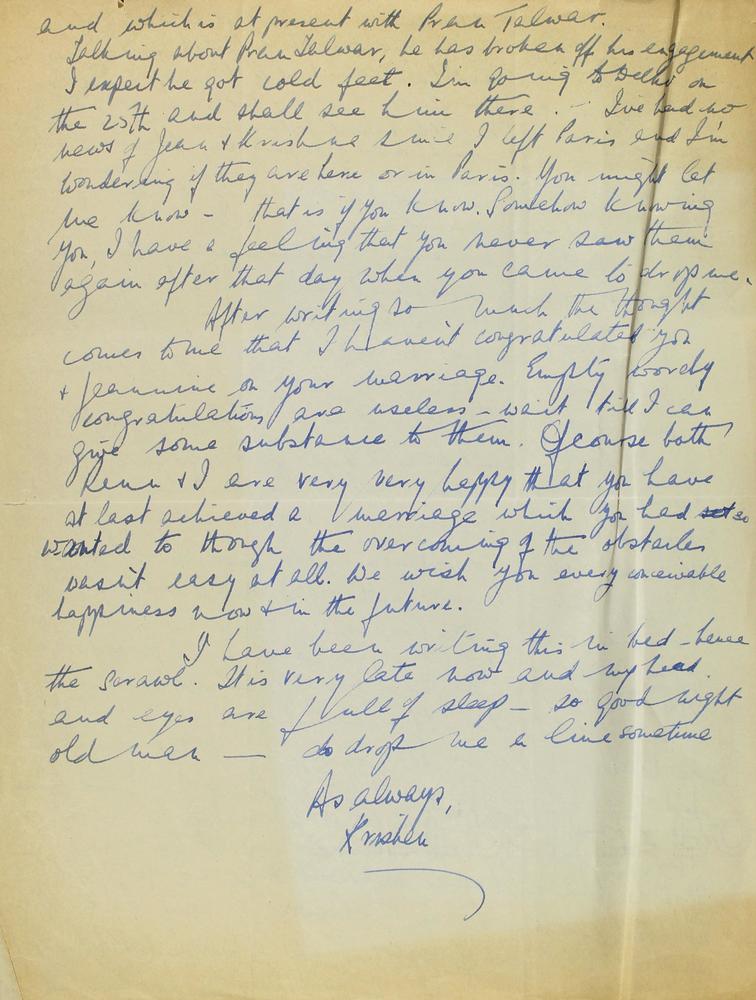 and which is at present with Pran Talwar.
Talking about Pran Talwar, he has broken off his engagement
I expect he got cold feet. I'm going to Delhi on
the 25th and shall see him there. - I've had no
news of Jean & Krishna since I left Paris and I'm
wondering if they are here or in Paris. You might let
me know - that is if you know. Somehow knowing
you, I have a feeling that you never saw them
again after that day when you came to drop me.
After writing so much the thought
comes to me that I haven't congratulated you
& Jeannine on your marriage. Empty wordy
congratulations are useless - wait till I can
give some substance to them. Of course both
Renu & I are very very happy that you have
at last achieved a marriage which you had so
wanted to though the overcoming of the obstacles
wasn't easy at all. We wish you every conceivable
happiness now & in the future.
I have been writing this in bed - hence
the scrawl. It is very late now and my head
and eyes are full of sleep - so good night
old man — do drop me a line sometime
As always,
Krishen